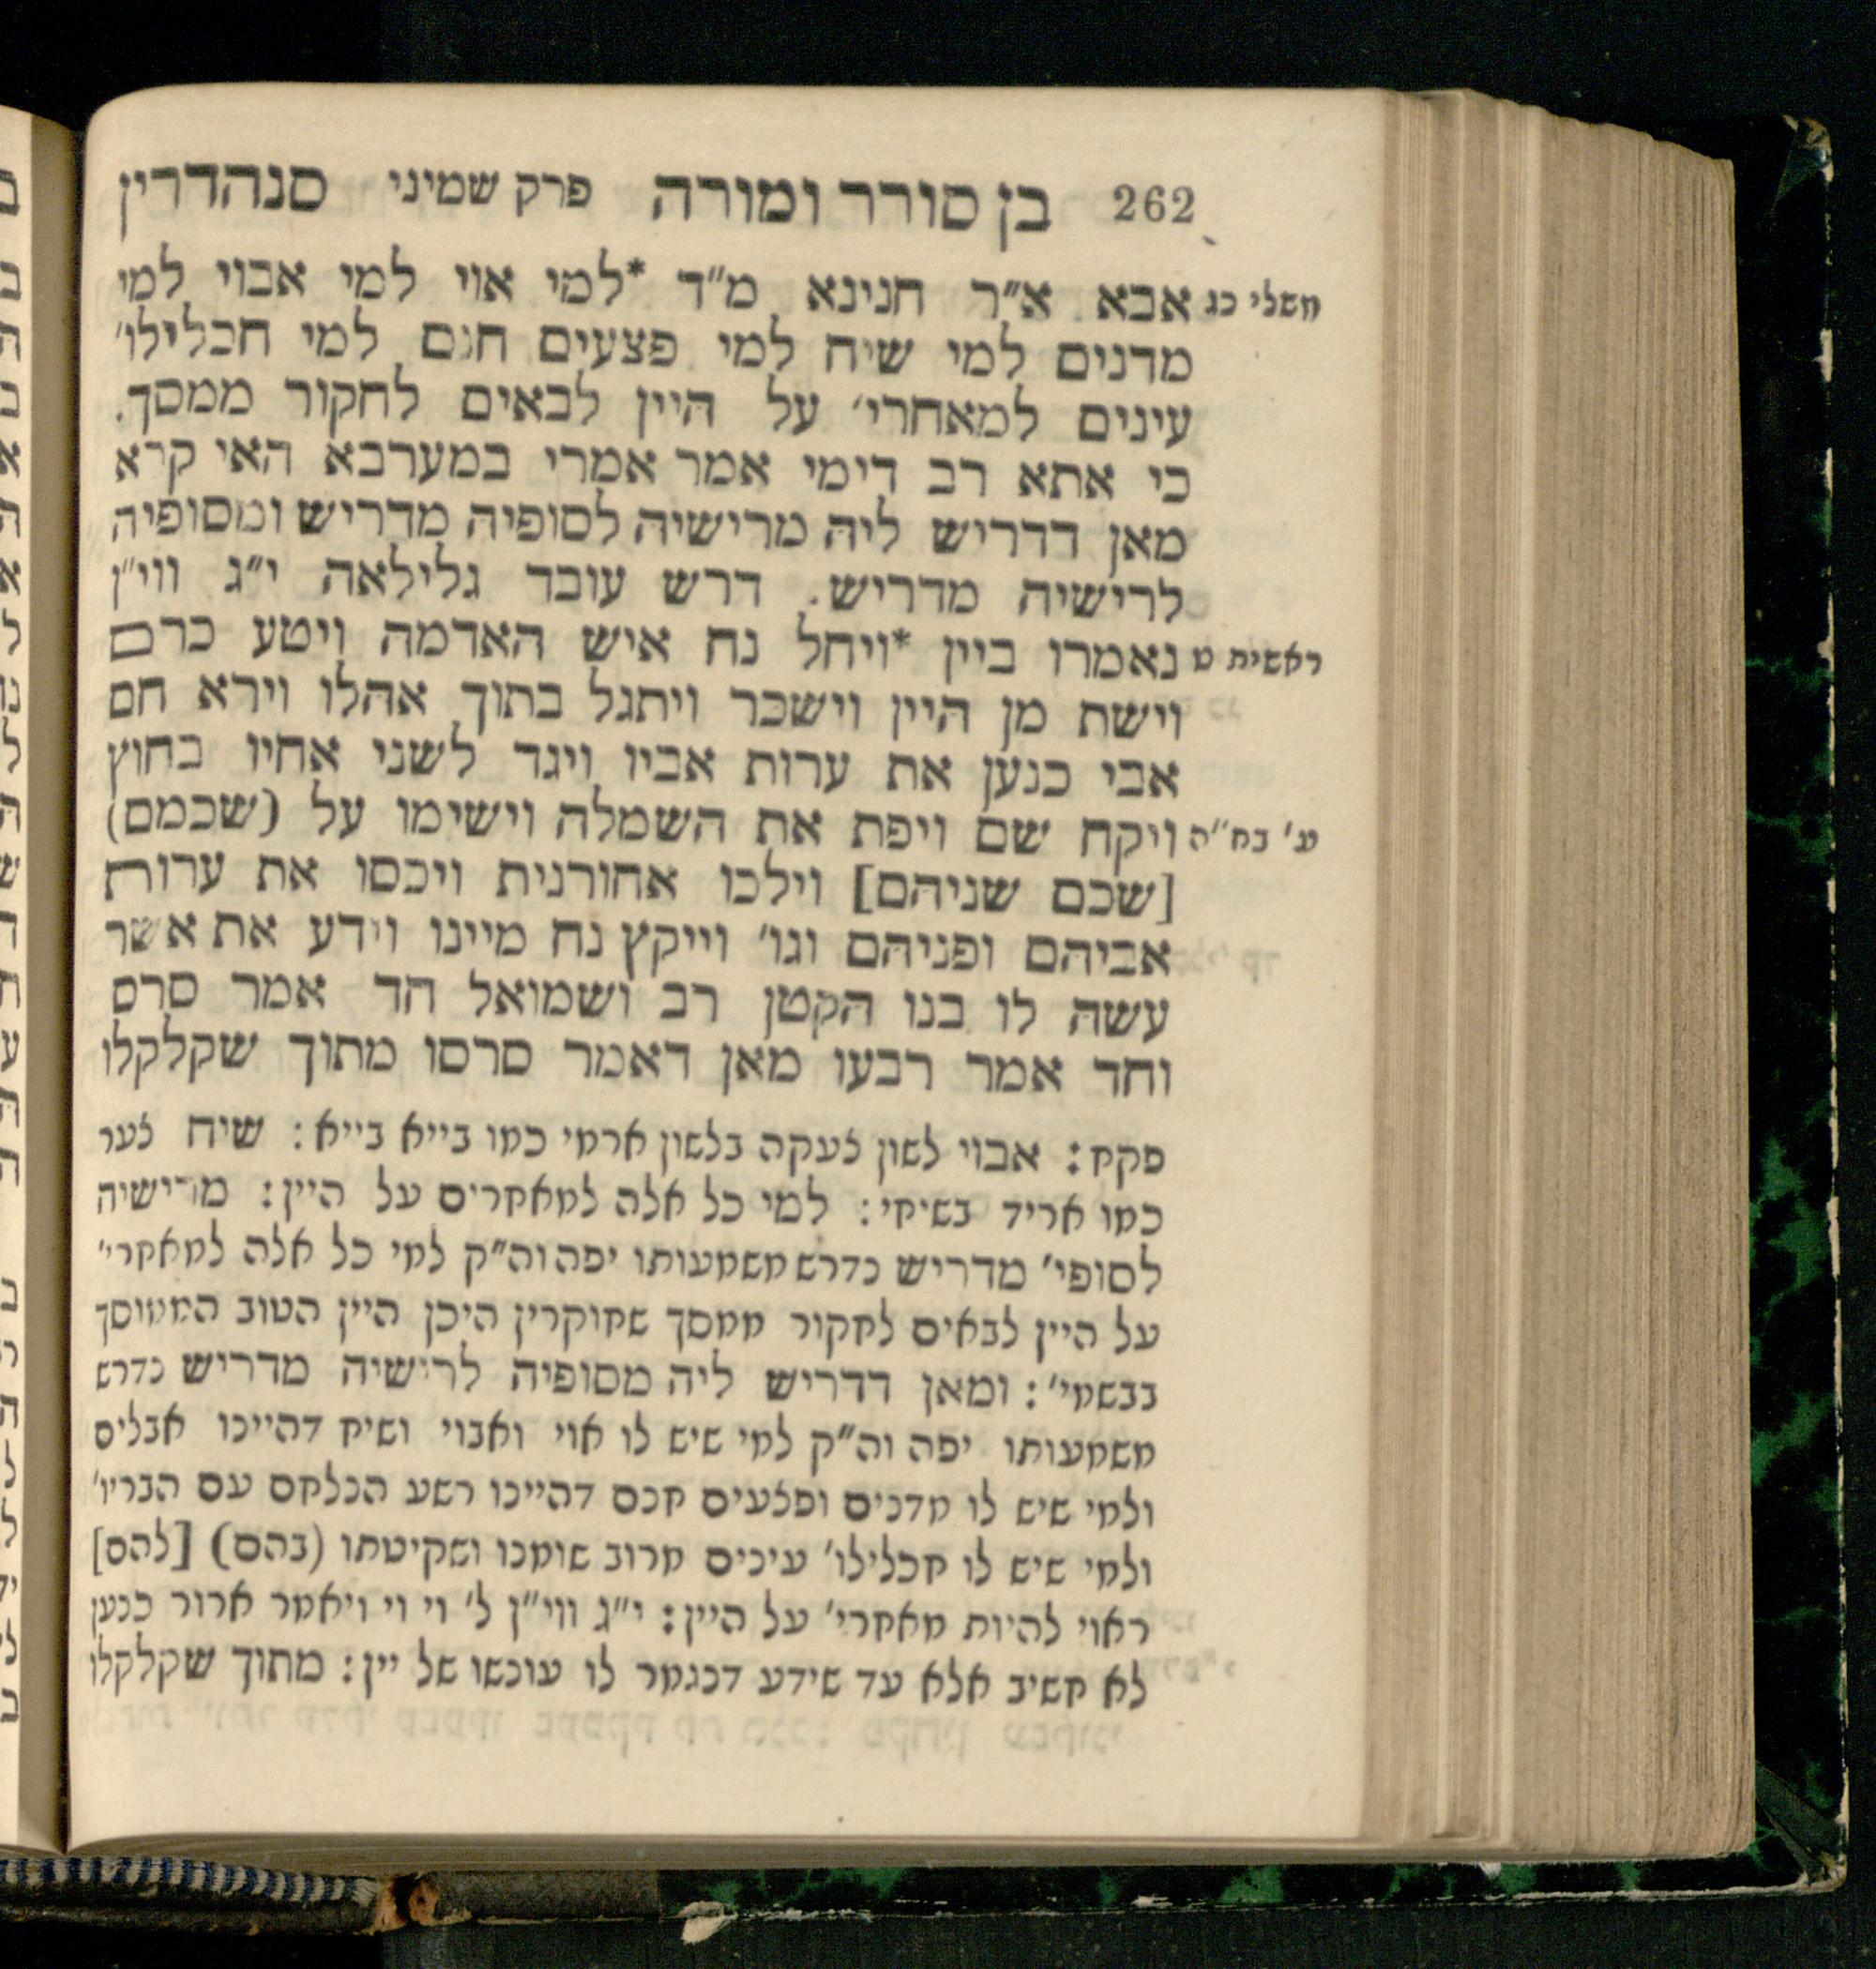 262 בן סורר ומורה פרק שמיני סנהדרין
משלי כג אבא א״ר חנינא מ״ד *למי אוי למי אבוי למי
מדנים למי שיח למי פצעים חנם למי חכלילו׳
עינים למאחרי׳ על היין לבאים לחקור ממסך.
כי אתא רב דימי אמר אמרי במערבא האי קרא
מאן דדריש ליה מרישיה לסופיה מדריש ומסופיה
לרישיה מדריש. דרש עובד גלילאה י״ג ווי״ן
ראשית ט נאמרו ביין *ויחל נח איש האדמה ויטע כרם
וישת מן היין וישכר ויתגל בתוך אהלו וירא חם
אבי כנען את ערות אביו ויגד לשני אחיו בחוץ
ע׳ בח״ה ויקח שם ויפת את השמלה וישימו על (שכמם)
[שכם שניהם] וילכו אחורנית ויכסו את ערות
אביהם ופניהם וגו׳ וייקץ נח מיינו וידע את אשר
עשה לו בנו הקטן רב ושמואל חד אמר סרס
וחד אמר רבעו מאן דאמר סרסו מתוך שקלקלו
פקח: אבוי לשון צעקה בלשון ארמי כמו בייא בייא: שיח צער
כמו אריד בשיחי: למי כל אלה למאחרים על היין: מרישיה
לסופי׳ מדריש נדרש משמעותו יפה וה״ק למי כל אלה למאחרי׳
על היין לבאים לחקור ממסך שחוקרין היכן היין הטוב הממוסך
בבשמי׳: ומאן דדריש ליה מסופיה לרישיה מדריש נדרש
משמעותו יפה וה״ק למי שיש לו אוי ואבוי ושיח דהיינו אבלים
ולמי שיש לו מדנים ופצעים חנם דהיינו רשע הנלחם עם הבריו׳
ולמי שיש לו חכלילו׳ עינים מרוב שומנו ושקיטתו (בהם) [להם]
ראוי להיות מאחרי׳ על היין: י״ג ווי״ן ל׳ וי וי ויאמר ארור כנען
לא חשיב אלא עד שידע דנגמר לו עונשו של יין: מתוך שקלקלו